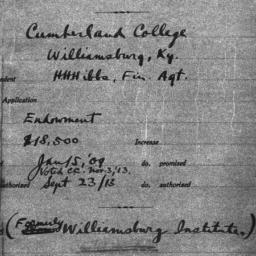 Cumberland College
Williamsburg, Ky.
dent HHHibbs, Fin. Agt.
Application
Endowment
$18,500 Increase
Jan 15, '09 do. promised
Voted CC. Nov. 3, '13.
authorized Sept 23/13 do. authorized
(Formerly Williamsburg Institute.)